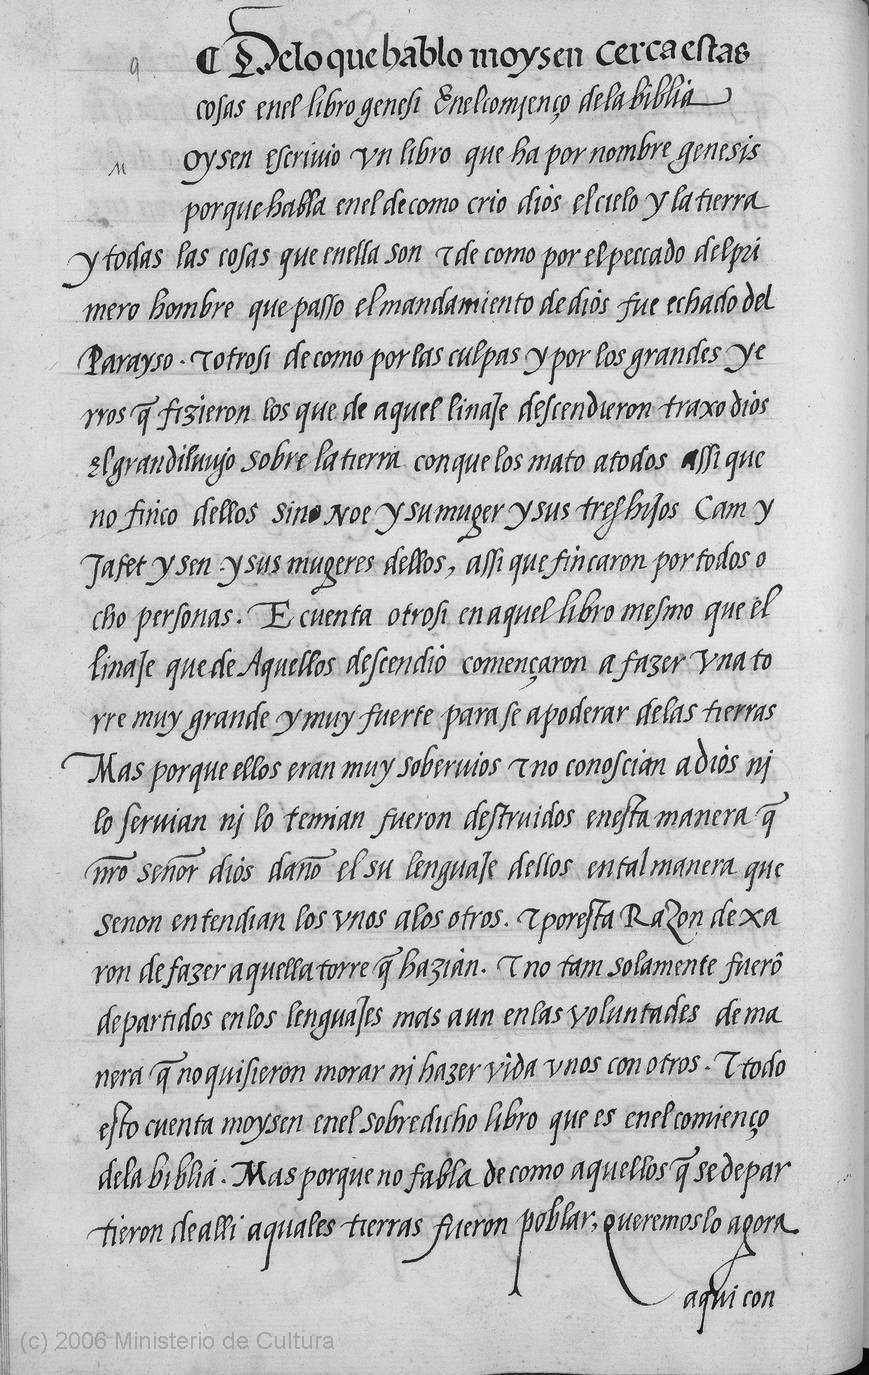 ¶ De lo que hablo moysen cerca estas
cosas en el libro genesi En el comienço de la biblia
9
M
oysen escrivio vn libro que ha por nombre genesis
porque habla en el de como crio dios el cielo y la tierra
y todas las cosas que en ella son τ de como por el peccado del pri
mero hombre que passo el mandamiento de dios fue echado del
Parayso . τ otrosi de como por las culpas y por los grandes ye
rros q̃ fizieron los que de aquel linaje descendieron traxo dios
El gran diluujo sobre la tierra con que los mato a todos assi que
no finco dellos sino Noe y su muger y sus tres hijos Cam y
Jafet y sen . y sus mugeres dellos, assi que fincaron por todos o
cho personas . E cuenta otrosi en aquel libro mesmo que el
linaje que de Aquellos descendio començaron a fazer vna to
rre muy grande y muy fuerte para se apoderar de las tierras
Mas porque ellos eran muy sobervios τ no conoscian a dios nj
lo servian nj lo temian fueron destruidos en esta manera q̃
nr̃o señor dios daño el su lenguaje dellos en tal manera que
se non entendian los vnos a los otros . τ por esta Razon dexa
ron de fazer aquella torre q̃ hazian . τ no tam solamente fuerõ
departidos en los lenguajes mas aun en las voluntades de ma
nera q̃ no quisieron morar nj hazer vida vnos con otros . τ todo
esto cuenta moysen en el sobredicho libro que es en el comienço
de la biblia . Mas porque no fabla de como aquellos q̃ se depar
tieron de alli a quales tierras fueron poblar, queremoslo agora
aqui con
(c) 2006 Ministerio de Cultura